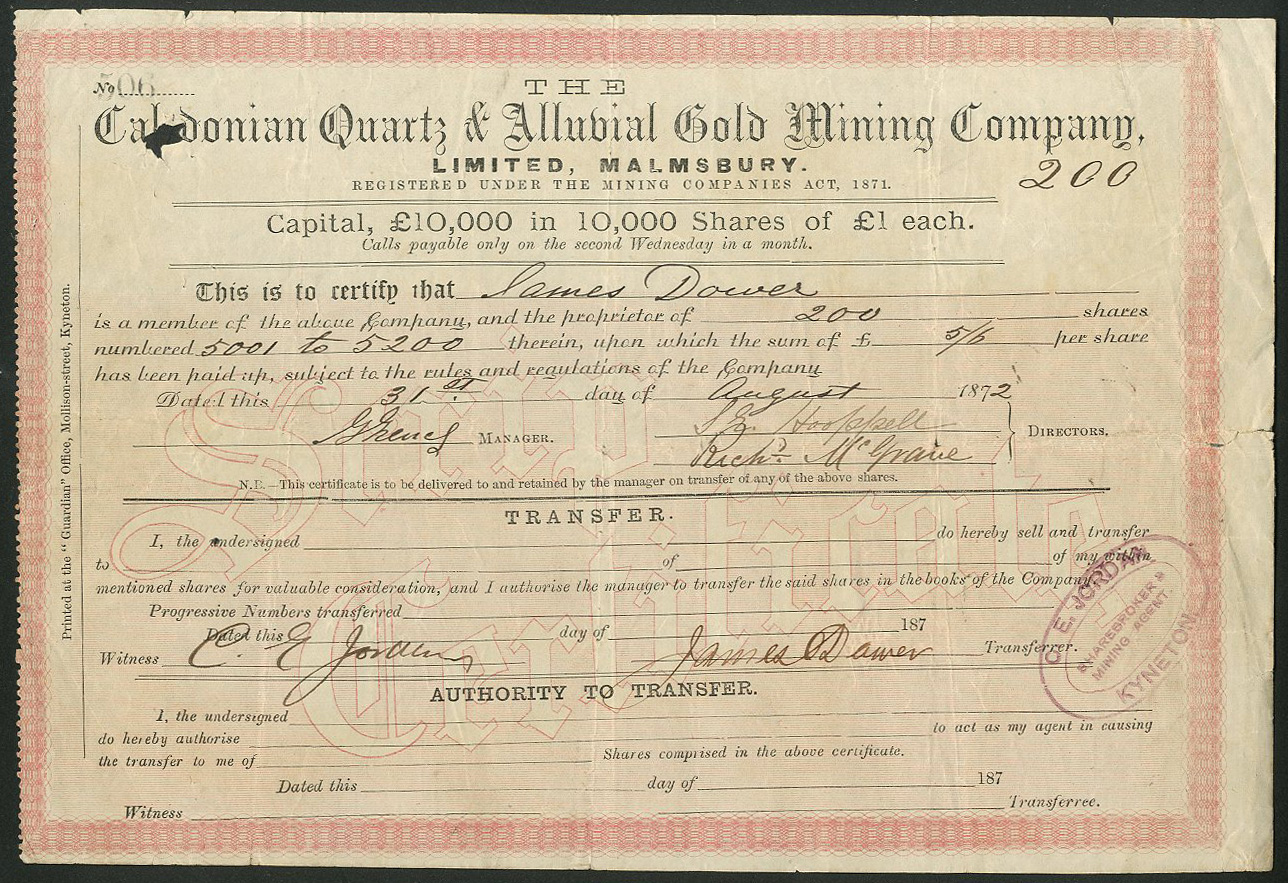 No 506
THE
Caledonian Quartz & Alluvial Gold Mining Company,
LIMITED, MALMSBURY.
200
REGISTERED UNDER THE MINING COMPANIES ACT, 1871.
Capital, £10,000 in 10,000 Shares of £1 each.
Calls payable only on the second Wednesday in a month.
This is to certify that James Dower
is a member of the above Company, and the proprietor of 200 shares
numbered 5001 to 5200 therein, upon which the sum of £ 5/6 per share
has been paid up, subject to the rules and regulations of the Company
Dated this 31st day of August 1872
MANAGER.
S. E. Hoppell
Richd. McGrave
DIRECTORS.
N.B.—This certificate is to be delivered to and retained by the manager on transfer of any of the above shares.
TRANSFER.
I, the undersigned do hereby sell and transfer
to of of my within
mentioned shares for valuable consideration, and I authorise the manager to transfer the said shares in the books of the Company
Progressive Numbers transferred
Dated this day of 187
Witness C. E. Jordan James Dower Transferrer.
AUTHORITY TO TRANSFER.
I, the undersigned
do hereby authorise to act as my agent in causing
the transfer to me of Shares comprised in the above certificate.
Dated this day of 187
Witness Transferree.
Printed at the "Guardian" Office, Mollison-street, Kyneton.
Scrip
Certificate
C. E. JORDAN
SHAREBROKER &
MINING AGENT.
KYNETON.